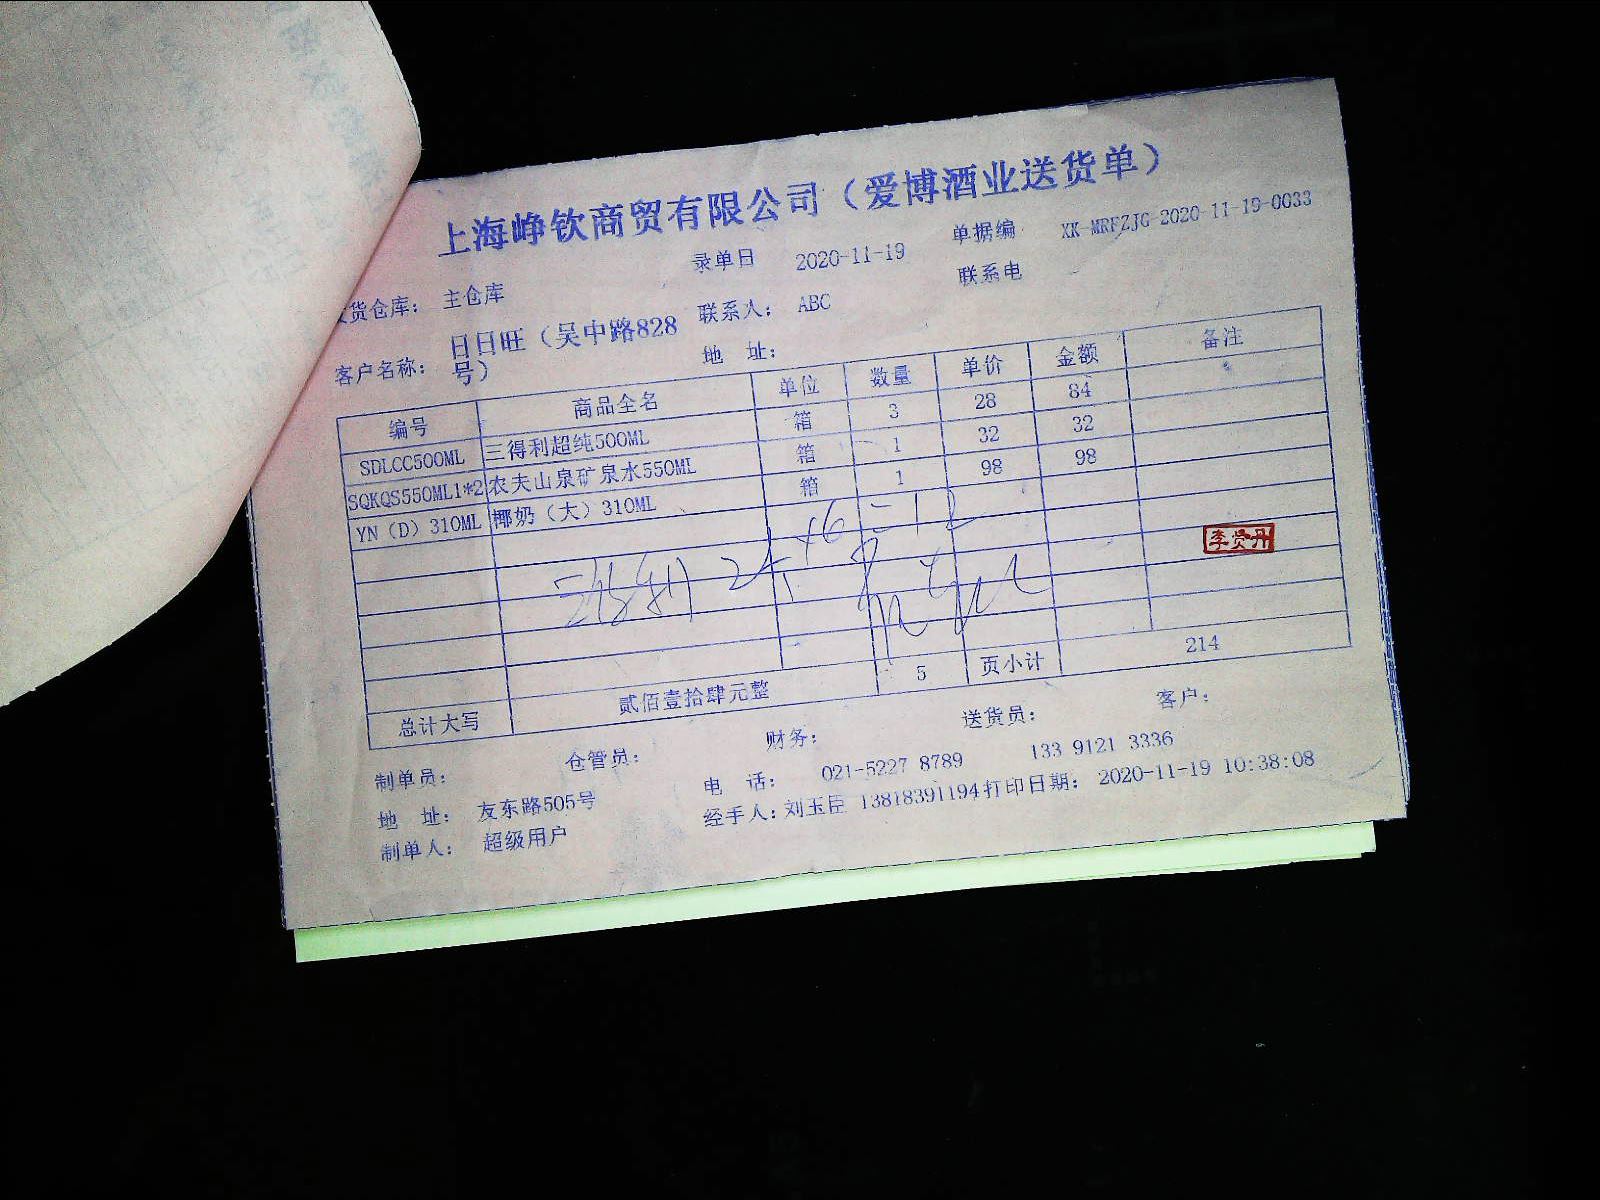 上海峥钦商贸有限公司（爱博酒业送货单）
录单日 2020-11-19 单据编 XK-MRFZJG-2020-11-19-0033
货仓库： 主仓库 联系人： ABC 联系电
客户名称： 日日旺（吴中路828号） 地 址：
编号 商品全名 单位 数量 单价 金额 备注
SDLCC500ML 三得利超纯500ML 箱 3 28 84
SQKQS550ML1*2 农夫山泉矿泉水550ML 箱 1 32 32
YN（D）310ML 椰奶（大）310ML 箱 1 98 98
李贤丹
总计大写 贰佰壹拾肆元整 5 页小计 214
制单员： 仓管员： 财务： 送货员： 客户：
地 址： 友东路505号 电 话： 021-5227 8789 133 9121 3336
制单人： 超级用户 经手人：刘玉臣 13818391194 打印日期： 2020-11-19 10:38:08